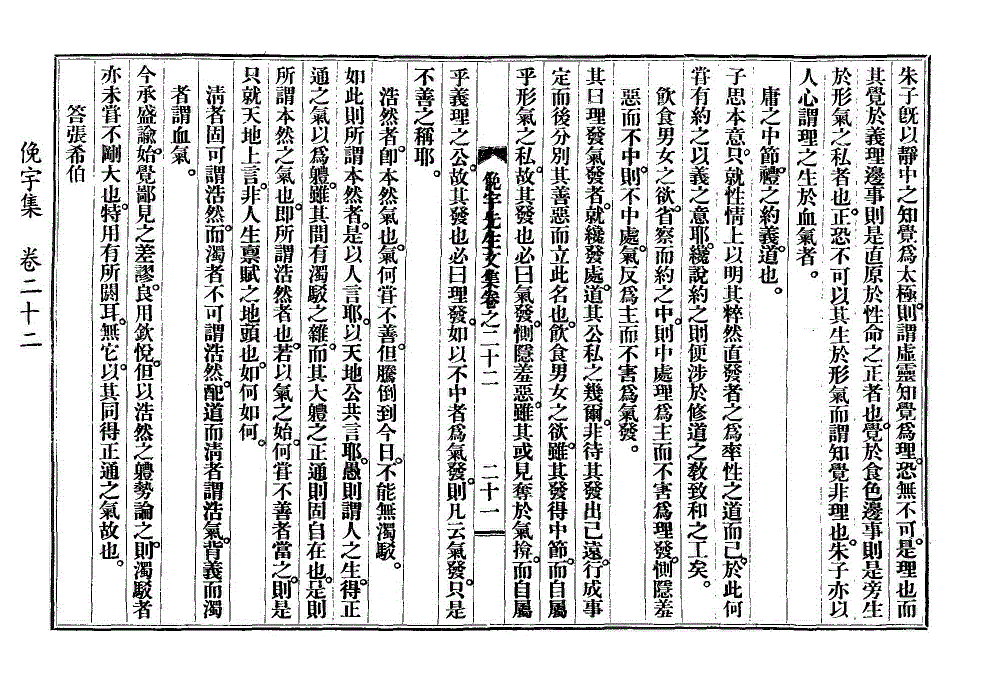 朱子旣以靜中之知覺爲太極。則謂虛靈知覺爲理。恐無不可。是理也而
其覺於義理邊事則是直原於性命之正者也。覺於食色邊事則是旁生
於形氣之私者也。正恐不可以其生於形氣而謂知覺非理也。朱子亦以
人心謂理之生於血氣者。
庸之中節。禮之約義。道也。
子思本意。只就性情上以明其粹然直發者之爲率性之道而已。於此何
甞有約之以義之意耶。纔說約之則便涉於修道之敎致和之工矣。
飮食男女之欲。省察而約之中。則中處理爲主而不害爲理發。惻隱羞
惡而不中。則不中處。氣反爲主而不害爲氣發。
其曰理發氣發者。就纔發處。道其公私之幾爾。非待其發出已遠。行成事
定而後分別其善惡而立此名也。飮食男女之欲。雖其發得中節。而自屬
乎形氣之私。故其發也必曰氣發。惻隱羞惡。雖其或見奪於氣揜。而自屬
俛宇先生文集卷之二十二　二十一
乎義理之公。故其發也必曰理發。如以不中者爲氣發。則凡云氣發。只是
不善之稱耶。
浩然者。卽本然氣也。氣何甞不善。但騰倒到今日。不能無濁駁。
如此則所謂本然者。是以人言耶。以天地公共言耶。愚則謂人之生。得正
通之氣以爲軆。雖其間有濁駁之雜。而其大軆之正通則固自在也。是則
所謂本然之氣也。卽所謂浩然者也。若以氣之始。何甞不善者當之。則是
只就天地上言。非人生禀賦之地頭也。如何如何。
淸者固可謂浩然。而濁者不可謂浩然。配道而淸者謂浩氣。背義而濁
者謂血氣。
今承盛諭。始覺鄙見之差謬。良用欽悅。但以浩然之軆勢論之。則濁駁者
亦未甞不剛大也。特用有所闕耳。無它。以其同得正通之氣故也。
答張希伯
俛宇集　卷二十二